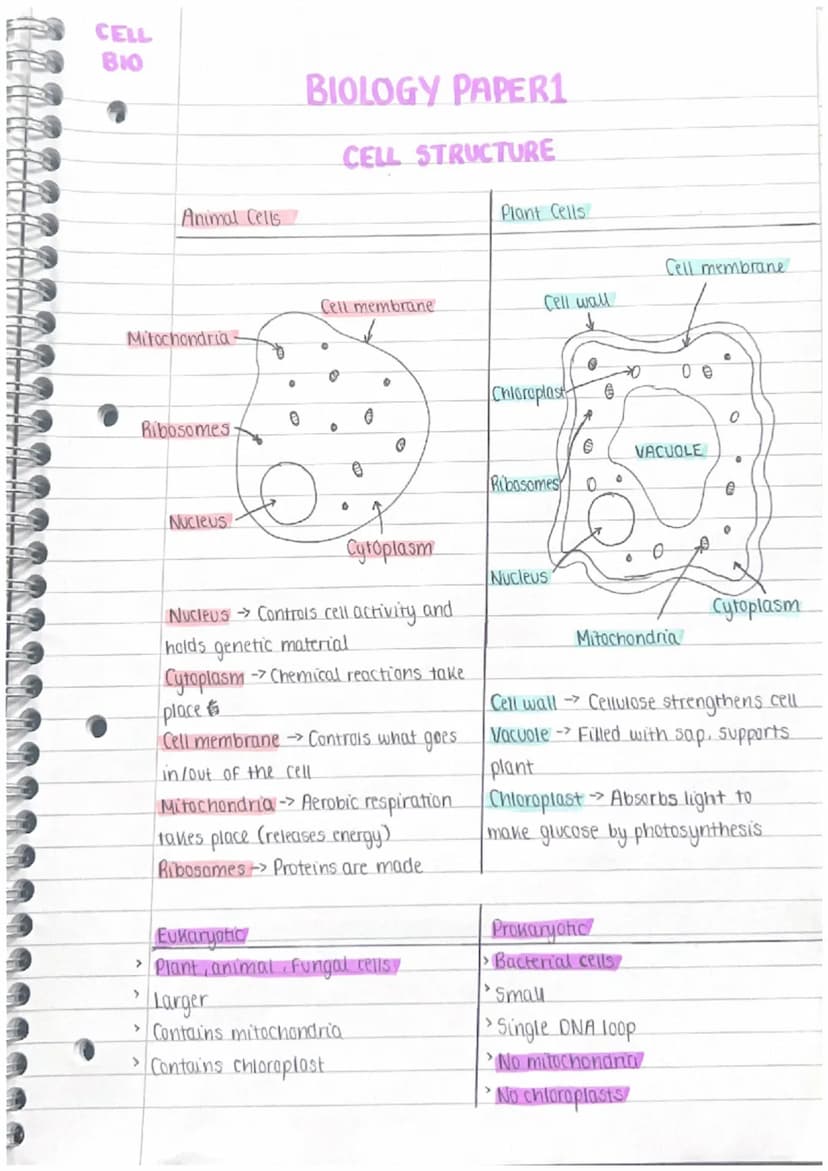 CELL
BIO
BIOLOGY PAPER1
CELL STRUCTURE
Animal Cells
Cell membrane
Mitochondria
Ribosomes
Nucleus
Cytoplasm
Nucleus → Controls cell activity and
holds genetic material
Cytoplasm → Chemical reactions take
place
Cell membrane → Controls what goes
in/out of the cell
Mitochondria → Aerobic respiration
takes place (releases energy)
Ribosomes → Proteins are made
Plant Cells
Cell membrane
Cell wall
Chloroplast
VACUOLE
Ribosomes
Nucleus
Cytoplasm
Mitochondria
Cell wall → Cellulose strengthens cell
Vacuole → Filled with sap, supports
plant
Chloroplast → Absorbs light to
make glucose by photosynthesis
Eukaryotic
> Plant, animal, fungal cells
> Larger
> Contains mitochondria
> Contains chloroplast
Prokaryotic
> Bacterial cells
> Small
> Single DNA loop
> No mitochondria
> No chloroplasts